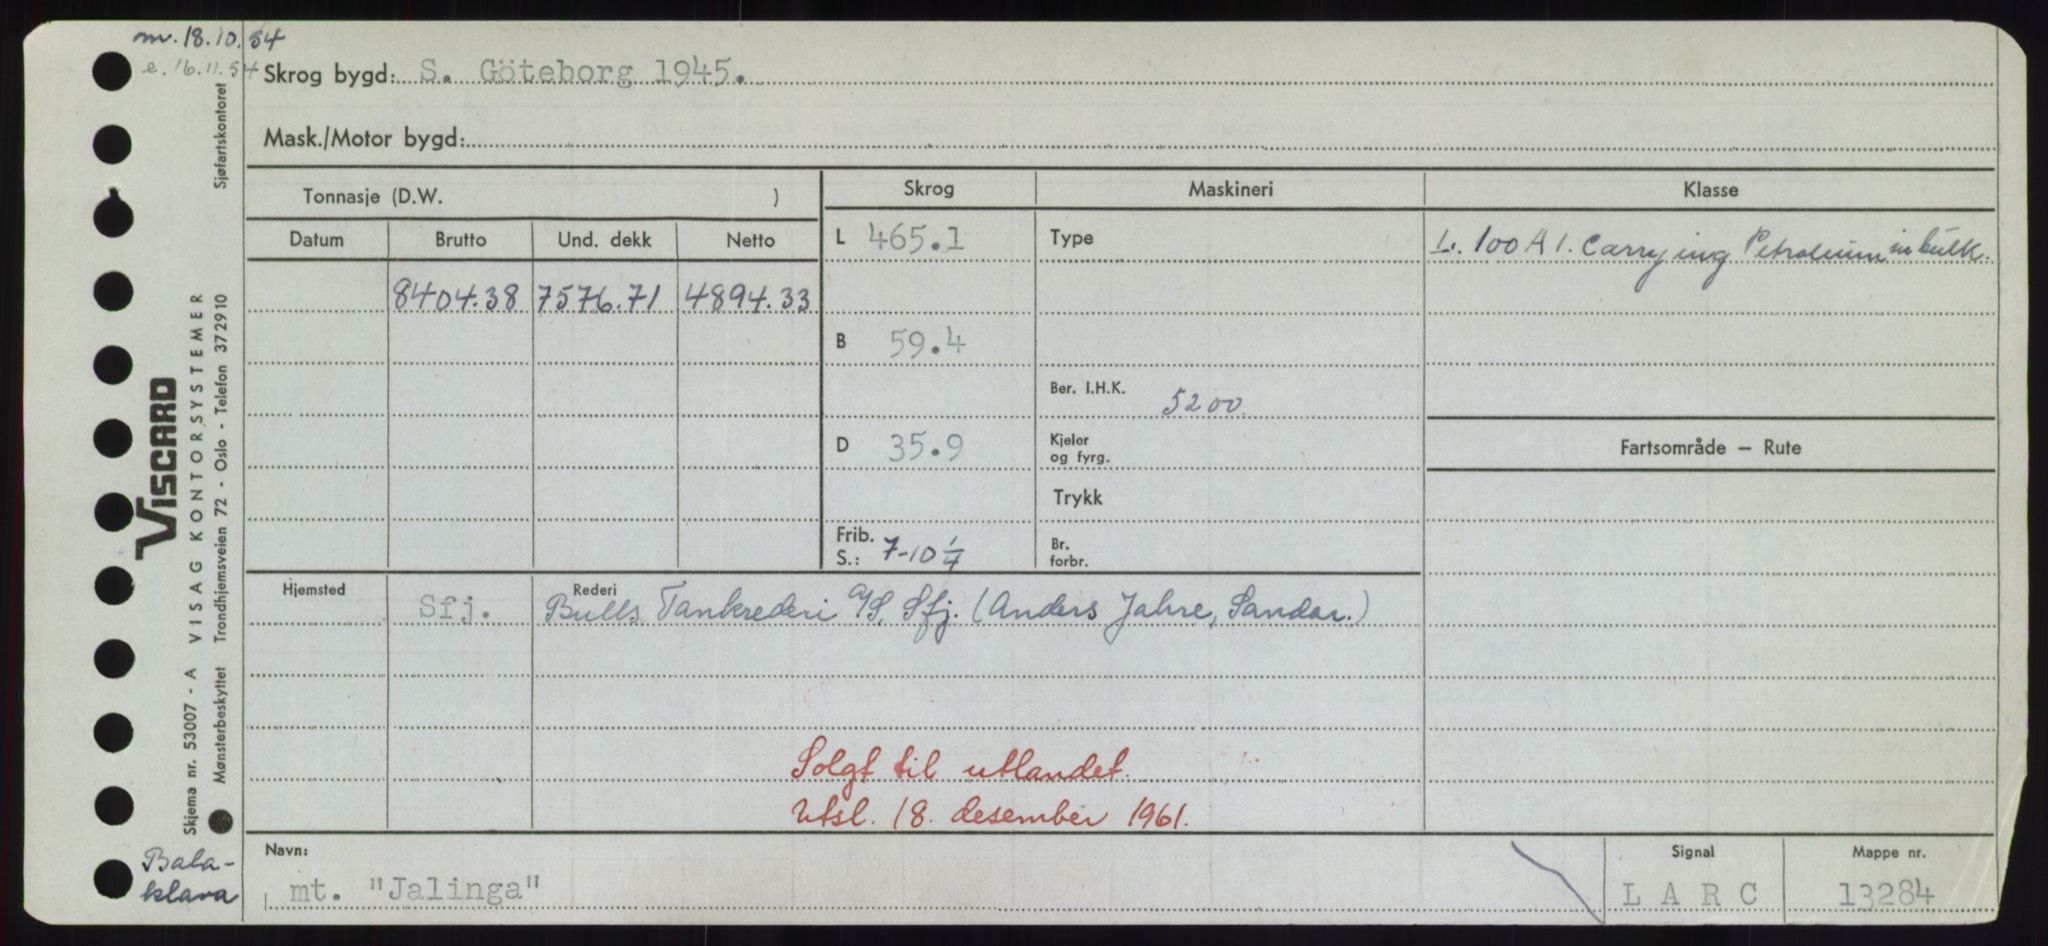 m. 18.10.54
e. 16.11.54
Skrog bygd: S. Göteborg 1945.
Mask./Motor bygd:
Tonnasje (D.W. )
Skrog
Maskineri
Klasse
Datum
Brutto
Und. dekk
Netto
L 465.1
Type
L. 100 A 1. Carrying Petroleum in bulk.
8404.38 7576.71 4894.33
B 59.4
Ber. I.H.K. 5200
D 35.9
Kjeler
og fyrg.
Fartsområde — Rute
Trykk
Frib.
S.: 7-10 1/4
Br.
forbr.
Hjemsted
Sfj.
Rederi
Bulls Tankrederi A/S, Sfj. (Anders Jahre, Sandar.)
Solgt til utlandet.
Utsl. 18. desember 1961.
Navn:
mt. "Jalinga"
Signal
L A R C
Mappe nr.
13284
Bala-
klava
VISCARD
Skjema nr. 53007 - A VISAG KONTORSYSTEMER
Mønsterbeskyttet Trondhjemsveien 72 - Oslo - Telefon 372910
Sjøfartskontoret